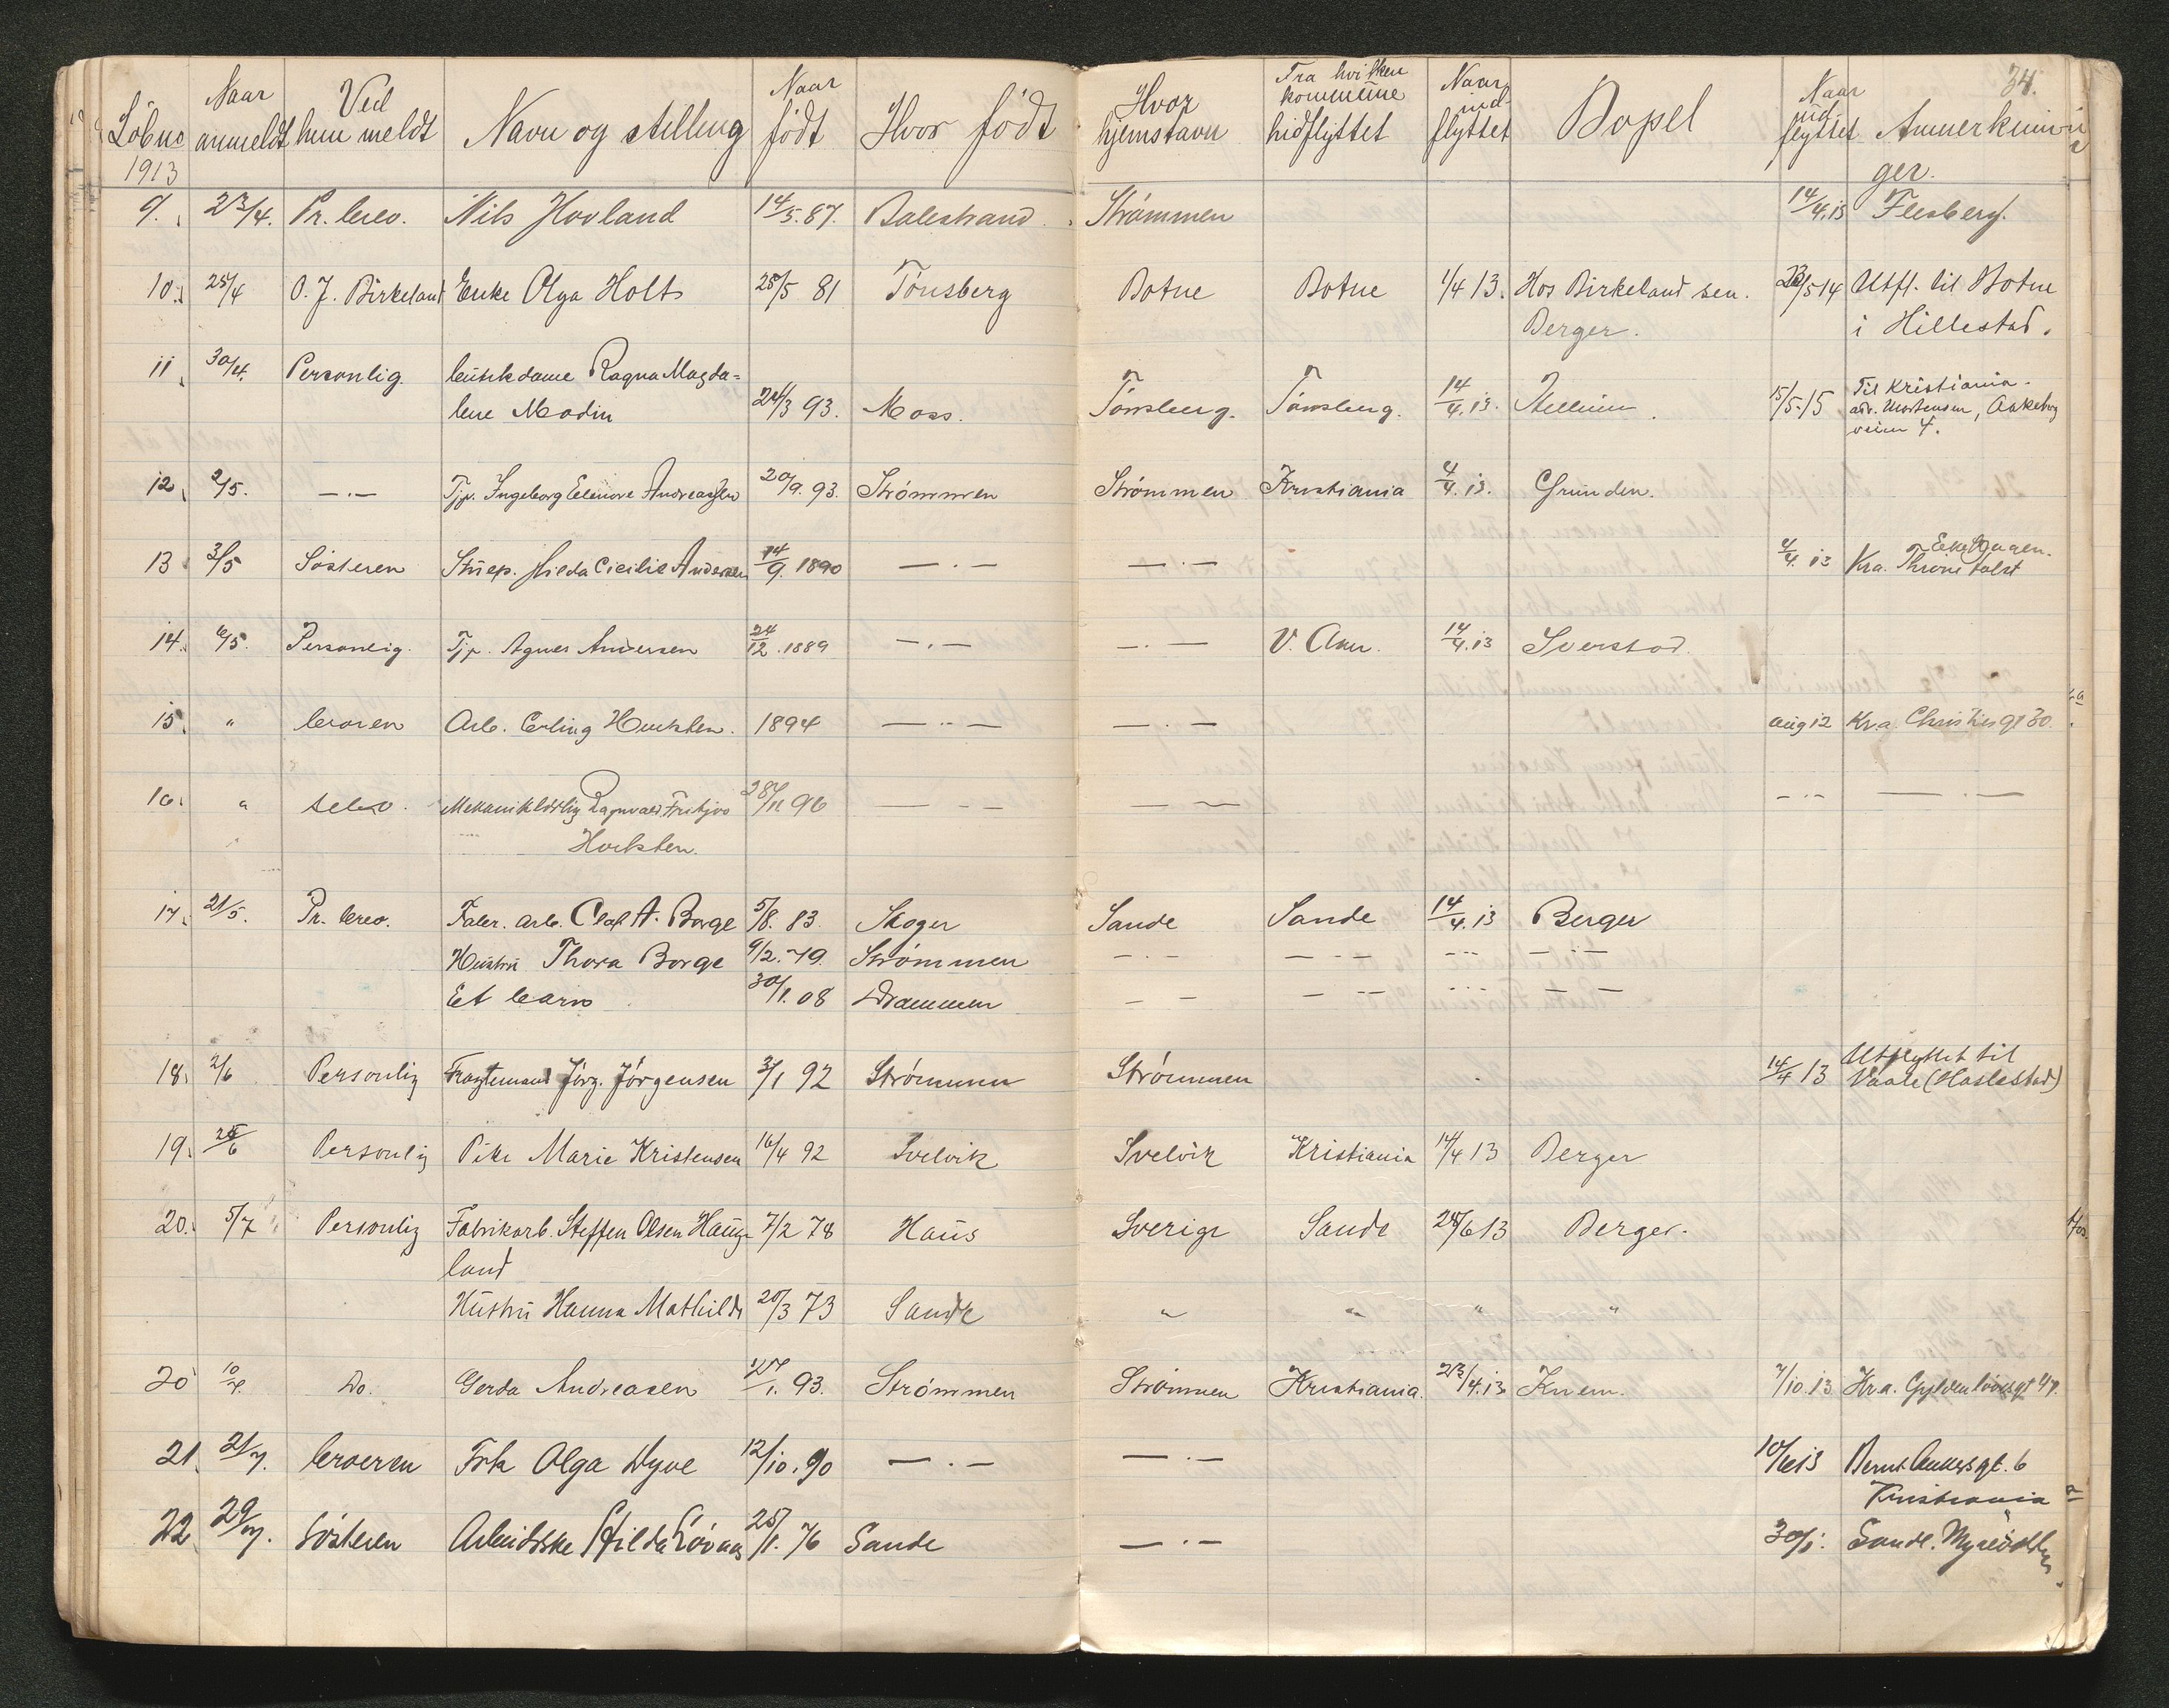 34.
Löbno Naar anmeldt Ved hvem meldt Navn og stilling Naar födt Hvor födt Hvor hjemstavn Fra hvilken kommune hidflyttet Naar indflyttet Bopel Naar udflyttet Anmerkninger.
1913
9. 23/4. Pr. brev. Nils Hovland 14/5. 87. Balestrand Strömmen 14/4. 13 Flesberg.
10. 25/4 O. J. Birkeland Enke Olga Holt 25/5 81 Tönsberg Botne Botne 1/4 13. Hos Birkeland sen. 23/5 14 Utfl. til Botne
Berger. i Hillestad.
11. 30/4. Personlig. butikdame Ragna Magda=
lene Modin 24/3 93. Moss. Tönsberg. Tönsberg. 14/4. 13. 15/5. 15 Til Kristiania.
adr. Mortensen, Aakeberg
veien 4.
12. 2/5. —.— Tjp. Ingeborg Elenore Andreassen 20/9. 93. Strömmen Strömmen Kristiania 4/4. 13. Grunden.
13 3/5 Sösteren Stuep. Hilda Cicilie Andersen 14/9. 1890 —.— —.— 4/4. 13 Kra.
14. 6/5. Personlig. Tjp. Agnes Andersen 24/12. 1889 —.— —.— V. Aker. 14/4. 13 Sverstad.
15. " broren Arb. Erling Houksten. 1894 —..— —.— aug 12 Kr.a. Christies gt 30.
16. " selv. Mekanikldrling Ragnvald Fritjov 28/11 96 — - — — — -..- —.—
Horksten.
17. 21/5. Pr. brev. Fabr. arb. Olaf A. Borge 5/8. 83. Skoger Sande Sande 14/4. 13 Berger
Hustru Thora Borge 9/2. 79. Strömmen -.- —.— -.- —.—
Et barn 30/1. 08 Drammen - - - -- ... — —
18. 2/6 Personlig Fragtemand Jörg. Jörgensen 3/1 92 Strömmen Strömmen 14/4 13 Utflyttet til
Vaale (Haslestad)
19. 25/6 Personlig Pike Marie Kristensen 16/4 92 Svelvik Svelvik Kristiania 14/4 13 Berger
20. 5/7 Personlig Fabrikarb. Steffen Olsen Haug- 7/2 78 Haus Sverige Sande 28/6 13 Berger.
land
Hustru Hanna Mathilde 20/3 73 Sande " " " "
20 10/7. Do. Gerda Andreasen 27/1. 93. Strömmen Strömmen Kristiania. 23/4. 13 Knem. 7/10. 13. Kr.a. Gyldenlövesgt 47.
21. 21/7. broren Frk Olga Dyve 12/10. 90 —.— —.— 10/6 13 Bernt Ankersgt. 6
Kristiania
22. 29/7. Sösteren Arbeidske Hilda Lövaas 25/1. 76 Sande —.— 30/1. Sande.